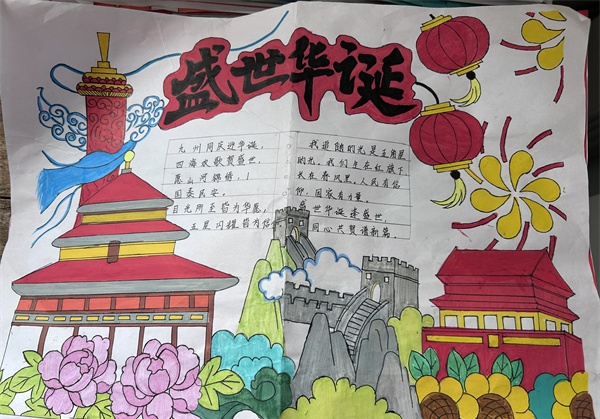 盛世华诞
九州同庆迎华诞，
四海欢歌贺盛世。
愿山河锦绣，
国泰民安。
目光所至皆为华愿，
五星闪耀皆为信
我追随的光是五角星
的光，我们生在红旗下
长在春风里，人民有信
仰，国家有力量，
盛世华诞逢盛世，
同心共贺谱新篇。